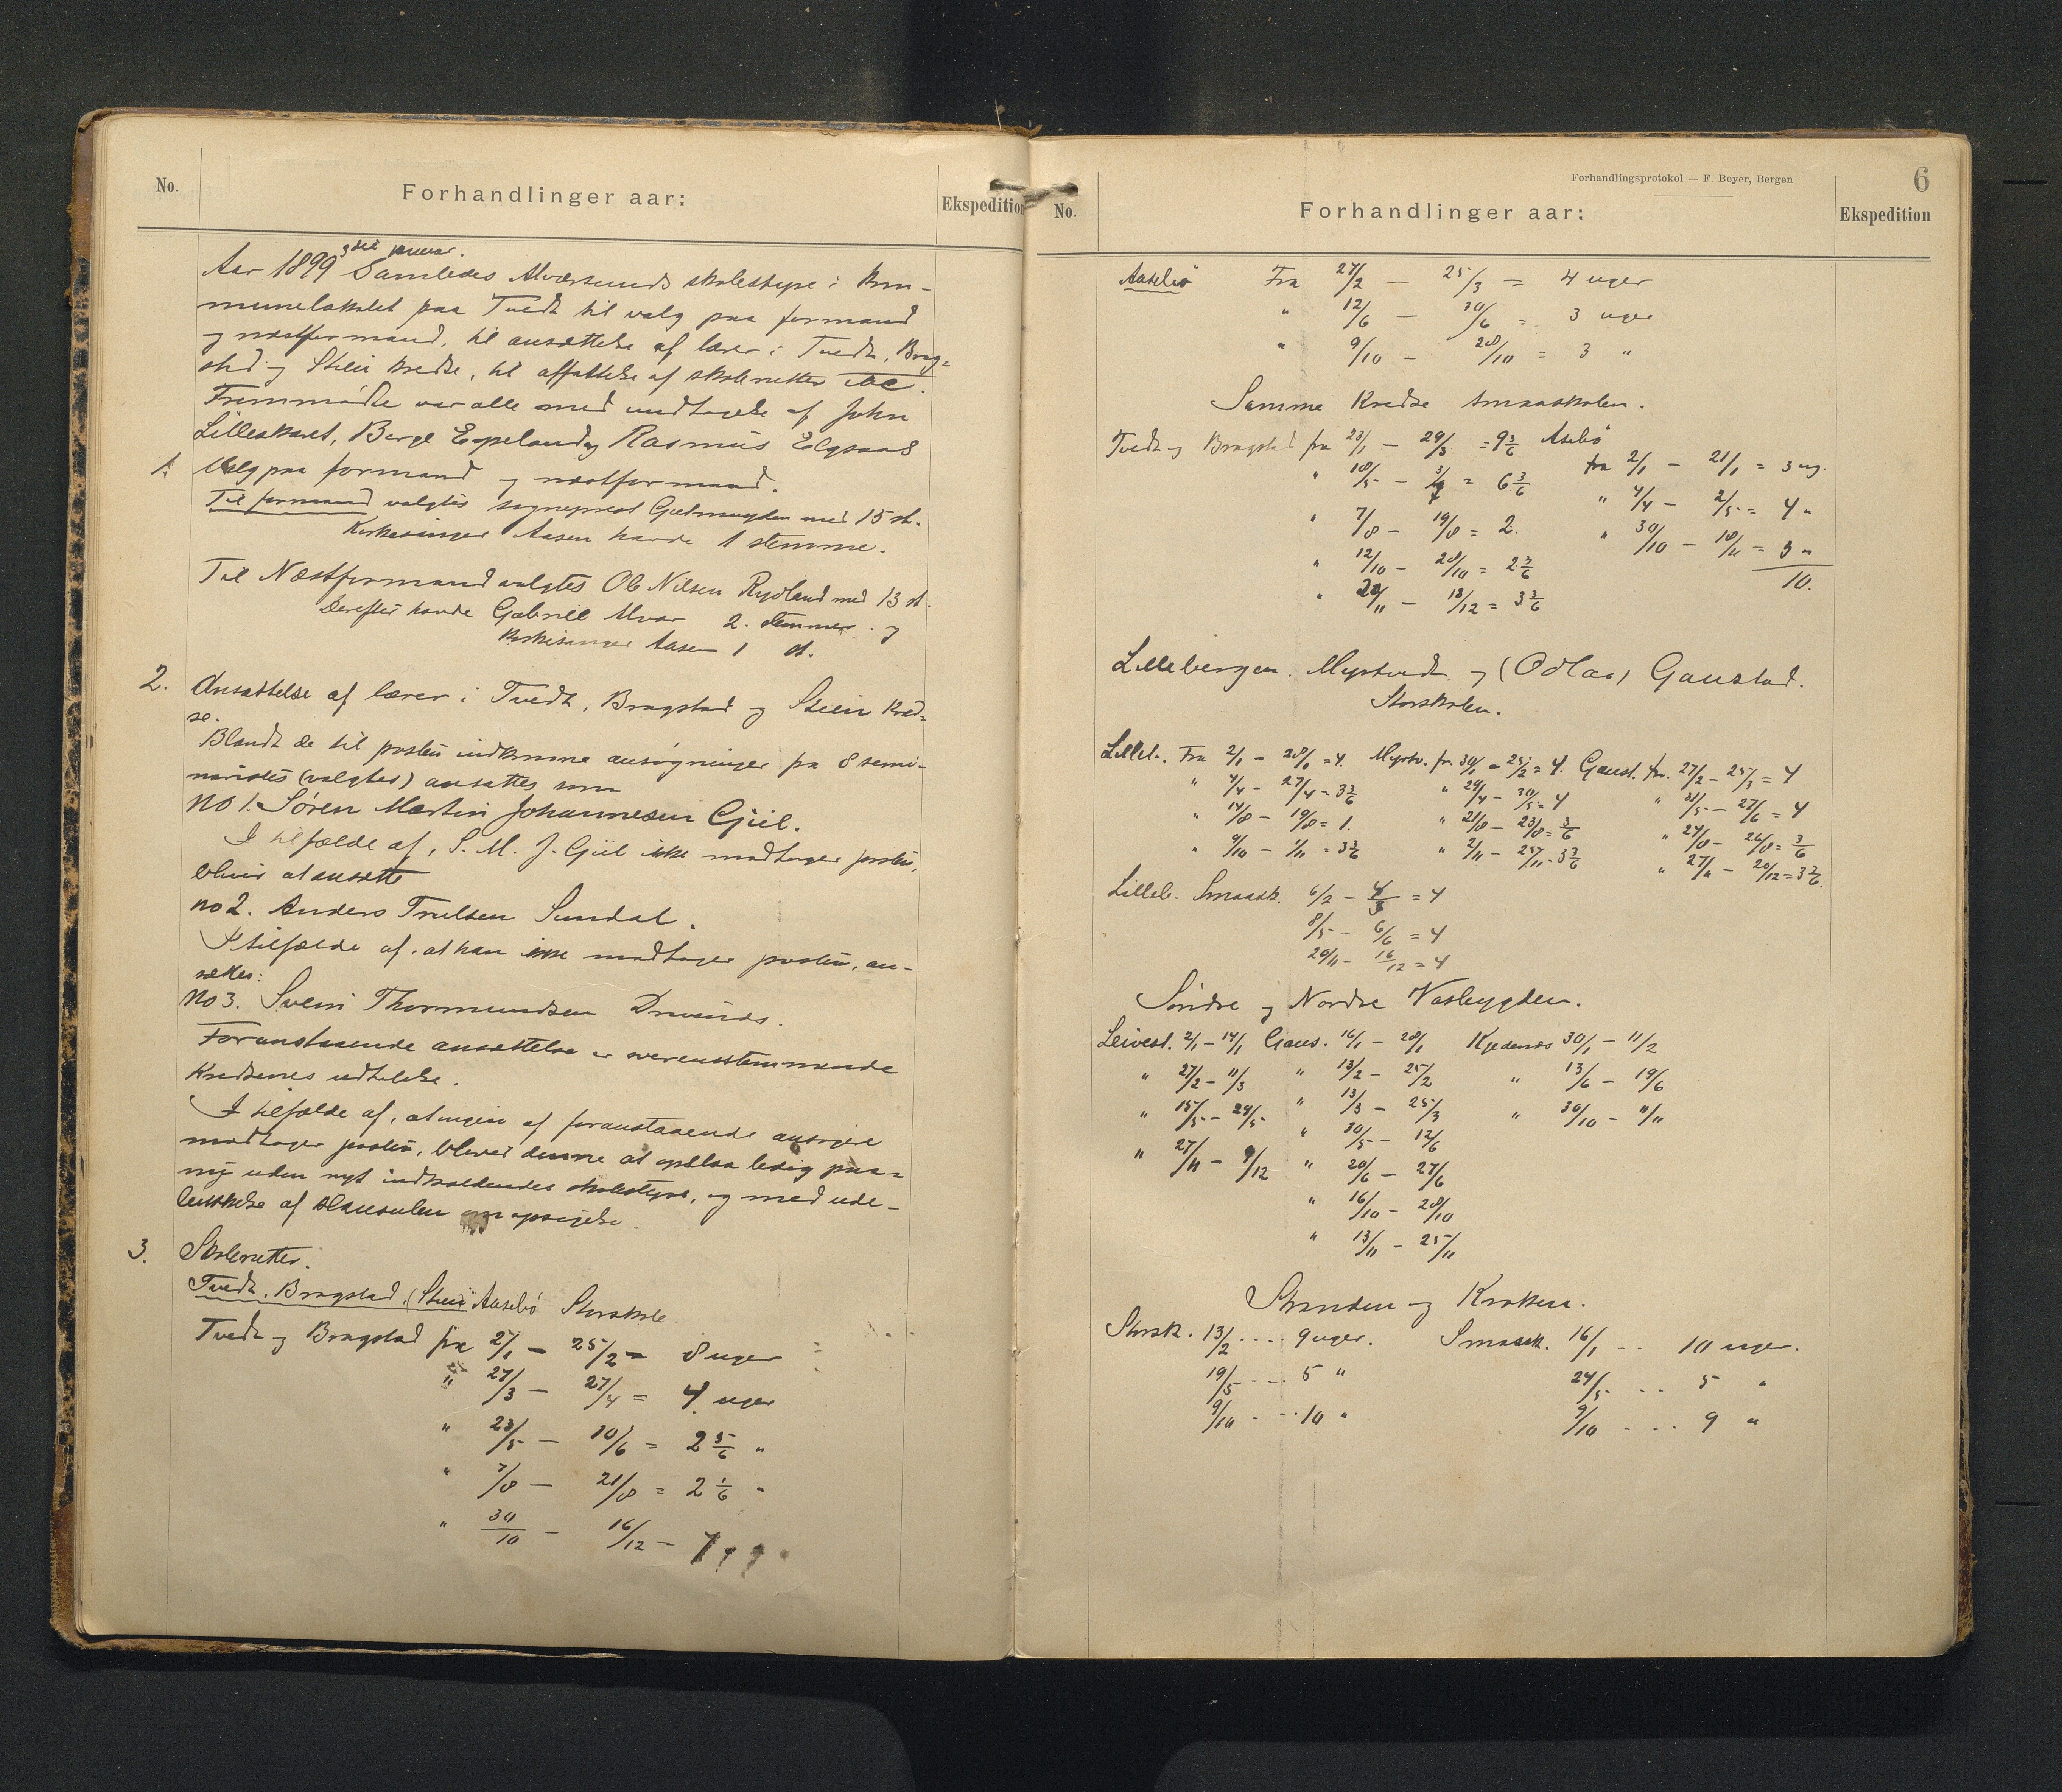 No.
Forhandlinger aar:
Ekspedition
Aar 1899 3die januar. Samledes Alværsunds skolestyre i kom-
munelokalet paa Tvedt til valg paa formand
og næstformand, til ansættelse af lærer i Tvedt, Brag-
stad og Stein kredse, til affattelse af skoleruter etc.
Fremmødte var alle med undtagelse af John
Lilleskaret, Berge Espeland og Rasmus Elgsaas
1. Valg paa formand og næstformand.
Til formand valgtes sogneprest Gjelmuyden med 15 st.
Kirkesanger Aasen havde 1 stemme.
Til Næstformand valgtes Ole Nilsen Rydland med 13 st.
Derefter havde Gabriel Alver 2. stemmer. og
Kirkesanger Aasen 1 st.
2. Ansættelse af lærer i Tvedt, Bragstad og Stein kred-
se.
Blandt de til posten indkomne ansøgninger fra 8 semi-
narister (valgtes) ansattes som
No 1. Søren Martin Johannesen Gjil.
I tilfælde af, S. M. J. Gjil ikke modtager posten,
bliver at ansætte
no 2. Anders Trulsen Sundal.
I tilfælde af, at han ikke modtager posten, an-
sættes:
No 3. Svein Thormundsen
Foranstaaende ansættelse er overensstemmende
Kredsenes udtalelse.
I tilfælde af, at ingen af foranstaaende ansøgere
modtager posten, bliver denne at opslaa ledig paa-
ny uden nyt indkaldendes skolestyre, og med ude-
lukkelse af klausulen om opsigelse.
3. Skoleruter.
Tvedt, Bragstad, (Stein) Aasebø Storskole.
Tvedt og Bragstad fra 2/1 — 25/2 = 8 uger
" 27/3 — 27/4 = 4 uger
" 23/5 — 10/6 = 2 5/6 "
" 7/8 — 21/8 = 2 1/6 "
" 30/10 — 16/12 — 7
Forhandlingsprotokol — F. Beyer, Bergen
6
No.
Forhandlinger aar:
Ekspedition
Aasebø Fra 27/2 — 25/3 = 4 uger
" 12/6 — 30/6 = 3 uger
" 9/10 — 28/10 = 3 "
Samme Kredse Smaaskolen.
Tvedt og Bragstad fra 23/1 — 29/3 = 9 3/6 Asebø
fra 2/1 — 21/1 = 3 ug.
" 18/5 — = 6 3/6 " 4/4 — 2/5 = 4 "
" 7/8 — 19/8 = 2. " 30/10 — 18/11 = 3 "
" 12/10 — 28/10 = 2 3/6 10.
" — 13/12 = 3 3/6
Lillebergen. Myrtvedt og (Odlaa) Gaustad.
Storskolen.
Lilleb. Fra 2/1 — 28/1 = 4. Myrtv. fr. 30/1 — 25/2 = 4. Gaust. fr. 27/2 — 25/3 = 4
" 4/4 — 27/4 = 3 3/6 " 29/4 — 30/5 = 4 " 31/5 — 27/6 = 4
" 14/8 — 19/8 = 1. " 21/8 — 23/8 = 3/6 " 24/8 — 26/8 = 3/6
" 9/10 — 1/11 = 3 3/6 " 2/11 — 25/11 = 3 3/6 " 27/11 — 20/12 = 3 3/6.
Lilleb. Smaask. 6/2 — 4/3 = 4
8/5 — 6/6 = 4
20/11 — 16/12 = 4
Søndre og Nordre Vasbygden.
Leivest. 2/1 — 14/1 Gaus. 16/1 — 28/1 Kvedenæs 30/1 — 11/2
" 27/2 — 11/3 " 13/2 — 25/2 " 13/6 — 19/6
" 15/5 — 29/5 " 13/3 — 25/3 " 30/10 — 11/11
" 27/11 — 9/12 " 30/5 — 12/6
" 20/6 — 27/6
" 16/10 — 28/10
" 13/11 — 25/11
Stranden og Kroken.
Storsk. 13/2 .... 9 uger. Smaask. 16/1 .. 10 uger.
19/5 .... 5 " 24/5 .. 5 "
9/10 .... 10 " 9/10 .... 9 "